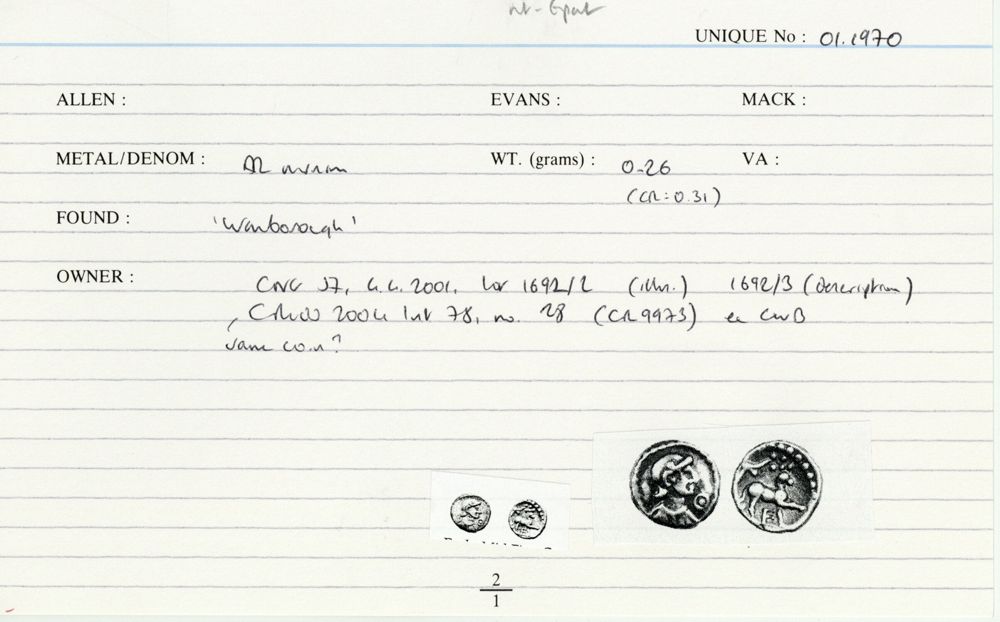 UNIQUE No : 01.1970
ALLEN :
EVANS :
MACK :
METAL/DENOM : AR minim
WT. (grams) : 0.26
(CR = 0.31)
VA :
FOUND : 'Wanborough'
OWNER : CNG 57, 4.4.2001, lot 1692/2 (illus.) 1692/3 (description)
, 2004 List 78, no. 28 (CR 9973) ex
same coin?
2
1